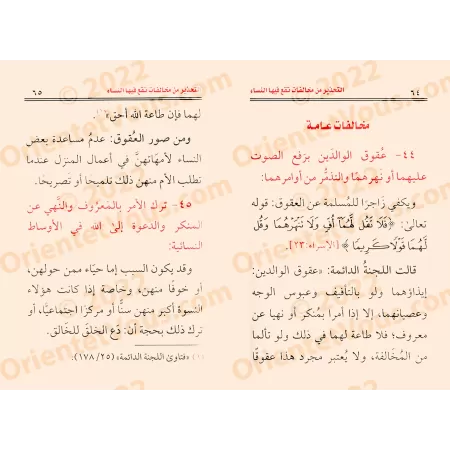 ٦٤ التحذير من مخالفات تقع فيها النساء
مخالفات عامة
٤٤- عُقوق الوالدَين برَفع الصوت
عليهما أو نَهرهمَا والتذمُّر من أوامرهما:
ويكفي زاجرًا للمُسلمة عن العقوق: قوله
تعالىٰ: ﴿فَلَا تَقُل لَّهُمَآ أُفٍّ وَلَا نَنْهَرْهُمَا وَقُل
لَّهُمَا قَوْلًا كَرِيمًا﴾ [الإسراء: ٢٣].
قالت اللجنةُ الدائمة: «عقوق الوالدين:
إيذاؤهما ولو بالتأفيف وعبوس الوجه
وعصيانهما، إلا إذا أمرا بمُنكر أو نهيا عن
معروف؛ فلا طاعة لهما في ذلك ولو تألما
من المُخالفة، ولا يُعتبر مجرد هذا عقوقًا
تحذير من مخالفات تقع فيها النساء ٦٥
لهما فإن طاعة الله أحق»(١).
ومن صور العُقوق: عدمُ مساعدة بعض
النساء لأمهاتهنَّ في أعمال المنزل عندما
تطلب الأم منهنَّ ذلك تلميحا أو تصريحا.
٤٥- ترك الأمر بالمَعرُوف والنَّهي عن
المنكر والدعوة إلىٰ الله في الأوساط
النسائية:
وقد يكون السبب إما حيَاء ممن حولهن،
أو خوفًا منهن، وخاصة إذا كانت هؤلاء
النسوة أكبر منهن سنًّا أو مركزًا اجتماعيًّا، أو
ترك ذلك بحجة أن: دَع الخلقَ للخَالق.
(١) «فتاوىٰ اللجنة الدائمة» (٢٥/ ١٧٨).
Orientevous.com © 2022